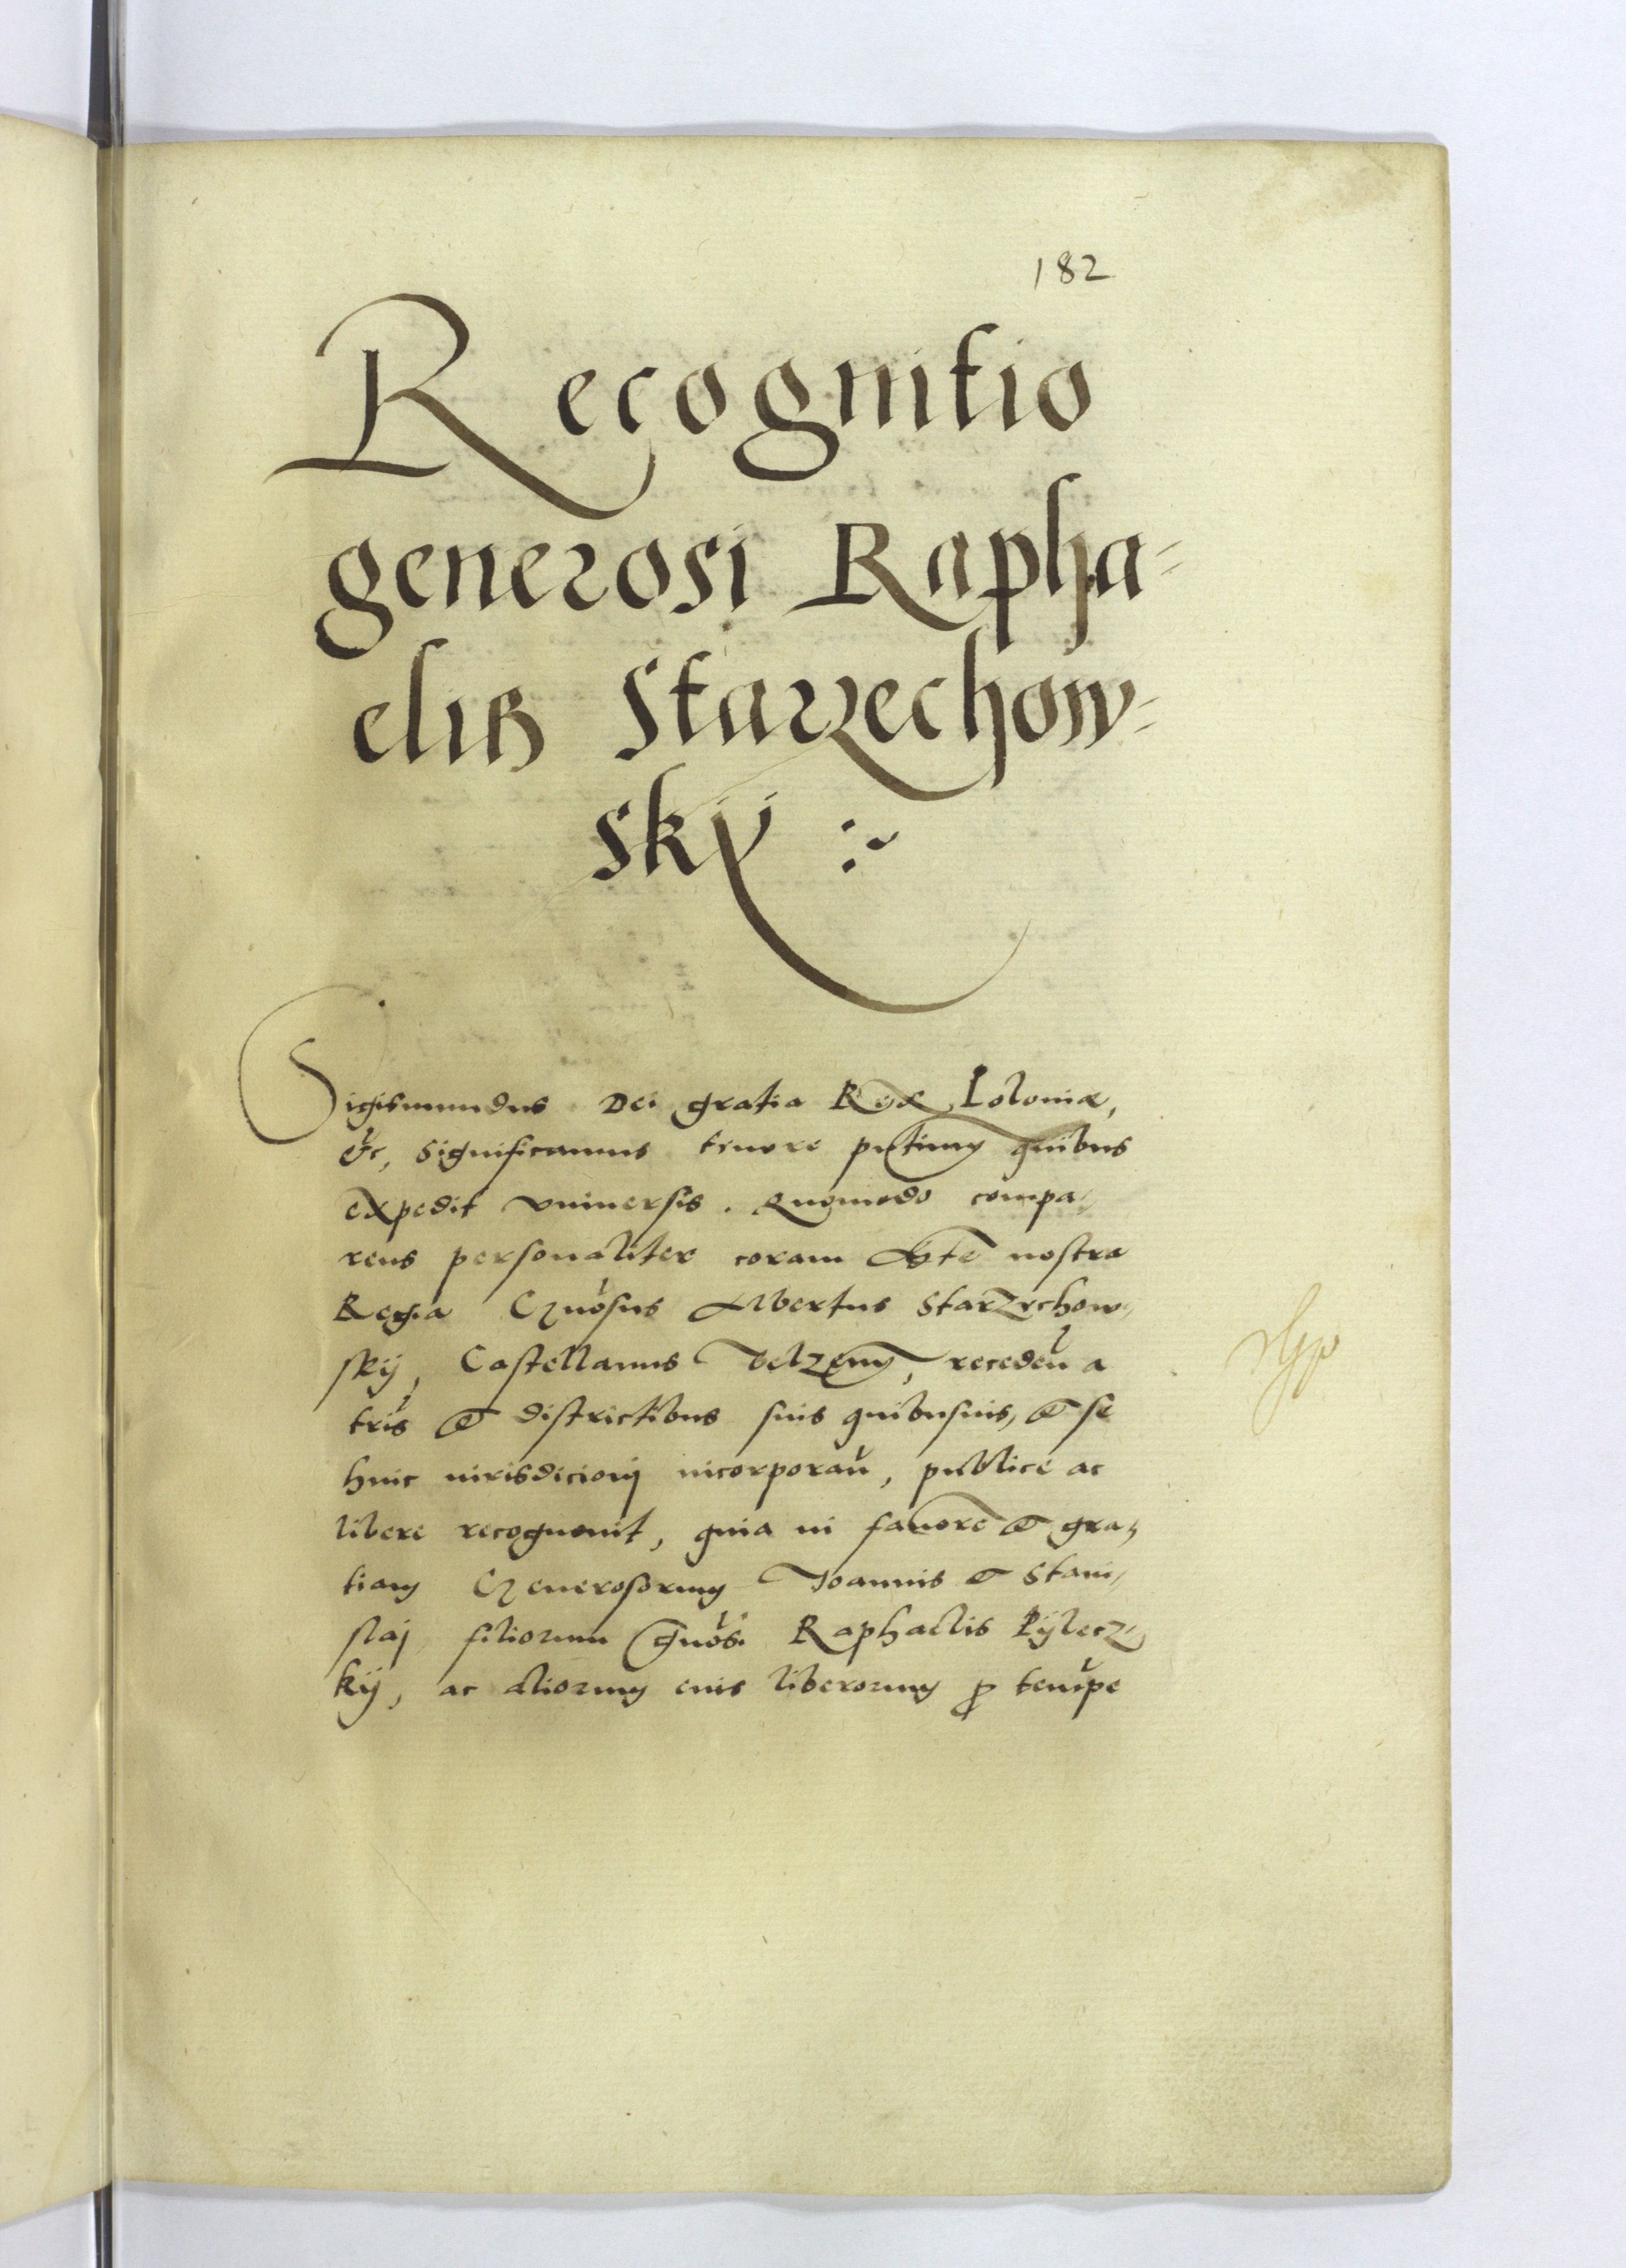 182
Recognitio
generosi Rapha-
elis Starzechow-
skÿ
Sigismundus Dei gratia Rex Poloniæ,
etc, Significamus tenore pntium quibus
expedit vniuersis. Quomodo compa-
rens personaliter coram Mte nostra
Regia Gnosus Albertus Starzechow-
skij, Castellanus Belzenn, receden a
tris et districtibus suis quibusuis, et se
huic iurisdicionj incorporan, publice ac
libere recognouit, quia in fauore et gra-
tiam Generosorum Joannis et Stani-
slaj filiorum Gnosi Raphaelis Pÿlecz-
kij, ac aliorum eius liberorum p tempe